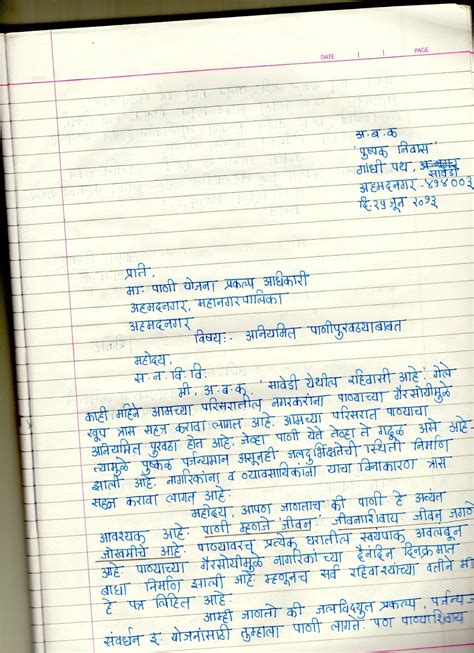 DATE | | PAGE
अ. ब. क
'पुष्पक निवास'
गांधी पथ,
सावेडी
अहमदनगर - ४१४००३
दि. २५ जून २०१३
प्रति,
मा. पाणी योजना प्रकल्प अधिकारी
अहमदनगर, महानगरपालिका
अहमदनगर
विषय:- अनियमित पाणीपुरवठ्याबाबत
महोदय,
स. न. वि. वि.
मी, अ. ब. क. सावेडी येथील रहिवासी आहे. गेले
काही महिने आमच्या परिसरातील नागरकरांना पाण्याच्या गैरसोयीमुळे
खूप त्रास सहन करावा लागत आहे. आमच्या परिसरात पाण्याचा
अनियमित पुरवठा होत आहे. जेव्हा पाणी येते तेव्हा ते गढूळ असे आहे.
त्यामुळे पुष्कळ पर्जन्यमान असूनही जलदुर्भिक्षतेची स्थिती निर्माण
झाली आहे. नागरिकांना व व्यावसायिकांना याचा विनाकारण त्रास
सहन करावा लागत आहे.
महोदय, आपण जाणताच की पाणी हे अत्यंत
आवश्यक आहे. पाणी म्हणजे 'जीवन'. जीवनाशिवाय जीवन जगणे
जोखमीचे आहे. पाण्यावरच प्रत्येक घरातील स्वयपाक अवलंबून
आहे. पाण्याच्या गैरसोयीमुळे नागरिकांच्या दैनंदिन दिनक्रमात
बाधा निर्माण झाली आहे. म्हणूनच सर्व रहिवाश्यांच्या वतीने मी
हे पत्र लिहित आहे.
आम्ही जाणतो की जलविद्युत प्रकल्प, पर्जन्य
संवर्धन इ. योजनांसाठी तुम्हाला पाणी लागते. पण पाण्याशिवाय